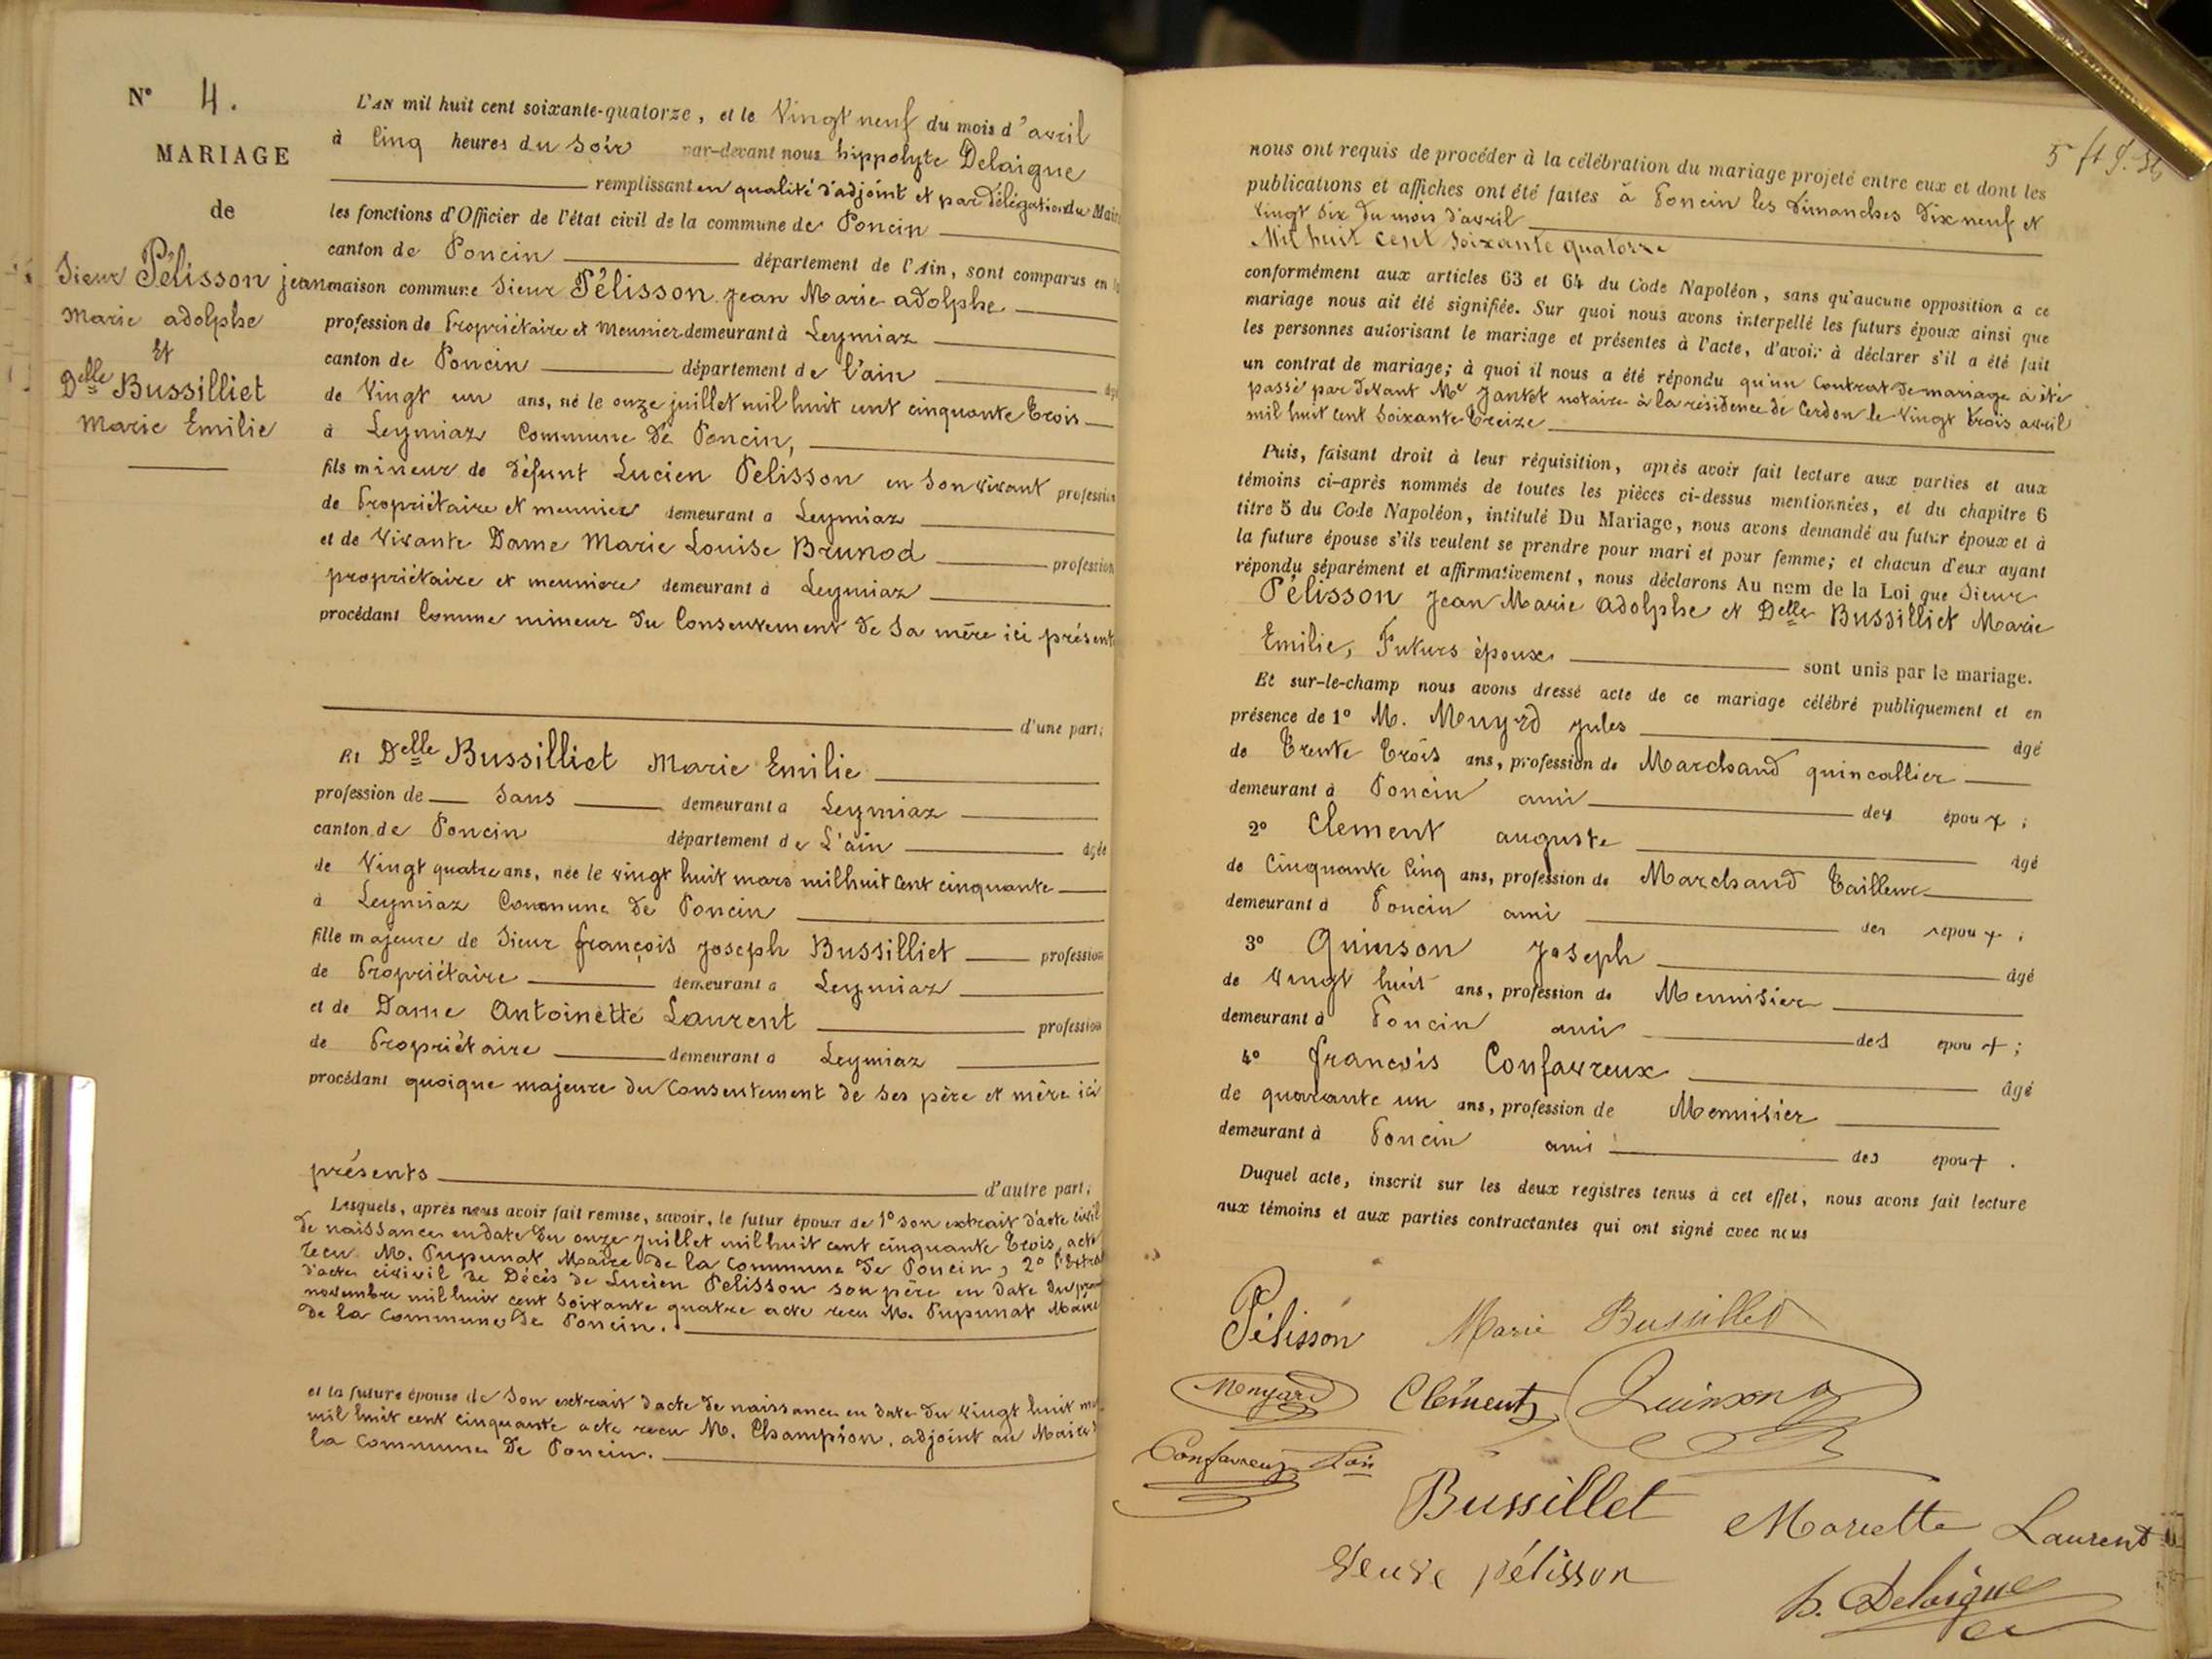 N° 4.
MARIAGE
de
Sieur Pélisson jean
Marie adolphe
Et
Delle Bussilliet
Marie Emilie
L'AN mil huit cent soixante-quatorze, et le Vingt neuf du mois d'avril
à Cinq heures du Soir par-devant nous hippolyte Delaigue
remplissant en qualité d'adjoint et par délégation du Maire
les fonctions d'Officier de l'état civil de la commune de Poncin
canton de Poncin département de l'Ain, sont comparus en la
maison commune Sieur Pélisson Jean Marie adolphe
profession de Propriétaire et Meunier demeurant à Leymiaz
canton de Poncin département de l'ain âgé
de Vingt un ans, né le onze juillet mil huit cent cinquante trois
à Leymiaz Commune de Poncin,
fils mineur de défunt Lucien Pelisson en Son vivant profession
de Propriétaire et meunier demeurant à Leymiaz
et de Vivante Dame Marie Louise Brunod profession
propriétaire et meuniere demeurant à Leymiaz
procédant Comme mineur du Consentement de Sa mère ici présente
d'une part;
Et Delle Bussilliet Marie Emilie
profession de Sans demeurant à Leymiaz
canton de Poncin département de L'ain âgée
de Vingt quatre ans, née le vingt huit mars mil huit Cent cinquante
à Leymiaz Commune de Poncin
fille majeure de Sieur françois Joseph Bussilliet profession
de Propriétaire demeurant à Leymiaz
et de Dame Antoinette Laurent profession
de Propriétaire demeurant à Leymiaz
procédant quoique majeure du Consentement de Ses père et mère ici
présents d'autre part;
Lesquels, après nous avoir fait remise, savoir, le futur époux de 1° Son extrait d'acte civil
de naissance en date du onze juillet mil huit cent cinquante trois, acte
recu M. Pupunat Maire de la Commune de Poncin, 2° l'Extrait
d'acte civivil de Décès de Lucien Pelisson son père en date du
novembre mil huit cent Soixante quatre acte recu M. Pupunat Maire
de la Commune de Poncin.
et la future épouse de Son extrait d'acte de naissance en date du Vingt huit
mil huit cent cinquante acte recu M. Champion, adjoint au Maire
la Commune de Poncin.
nous ont requis de procéder à la célébration du mariage projeté entre eux et dont les
publications et affiches ont été faites à Poncin les dimanches dix neuf et
Vingt Six du mois d'avril
Mil huit cent Soixante quatorze
conformément aux articles 63 et 64 du Code Napoléon, sans qu'aucune opposition a ce
mariage nous ait été signifiée. Sur quoi nous avons interpellé les futurs époux ainsi que
les personnes autorisant le mariage et présentes à l'acte, d'avoir à déclarer s'il a été fait
un contrat de mariage; à quoi il nous a été répondu qu'un Contrat de mariage a été
passé par devant Me Jantet notaire à la résidence de Cerdon le Vingt trois avril
mil huit Cent Soixante treize
Puis, faisant droit à leur réquisition, après avoir fait lecture aux parties et aux
témoins ci-après nommés de toutes les pièces ci-dessus mentionnées, et du chapitre 6
titre 5 du Code Napoléon, intitulé Du Mariage, nous avons demandé au futur époux et à
la future épouse s'ils veulent se prendre pour mari et pour femme; et chacun d'eux ayant
répondu séparément et affirmativement, nous déclarons Au nom de la Loi que Sieur
Pélisson Jean Marie adolphe et Delle Bussilliet Marie
Emilie, Futurs époux sont unis par le mariage.
Et sur-le-champ nous avons dressé acte de ce mariage célébré publiquement et en
présence de 1° M. Monyrd Jules âgé
de Trente trois ans, profession de Marchand quincallier
demeurant à Poncin ami des époux;
2° Clement auguste âgé
de Cinquante Cinq ans, profession de Marchand Tailleur
demeurant à Poncin ami des époux;
3° Quinson Joseph âgé
de Vingt huit ans, profession de Menuisier
demeurant à Poncin ami des époux;
4° françois Confavreux âgé
de quarante un ans, profession de Menuisier
demeurant à Poncin ami des époux.
Duquel acte, inscrit sur les deux registres tenus à cet effet, nous avons fait lecture
aux témoins et aux parties contractantes qui ont signé avec nous
Pélisson Marie Bussillet
Monyard Clément Quinson
Confavreux
Bussillet Mariette Laurent
Veuve pélisson
h. Delaigue